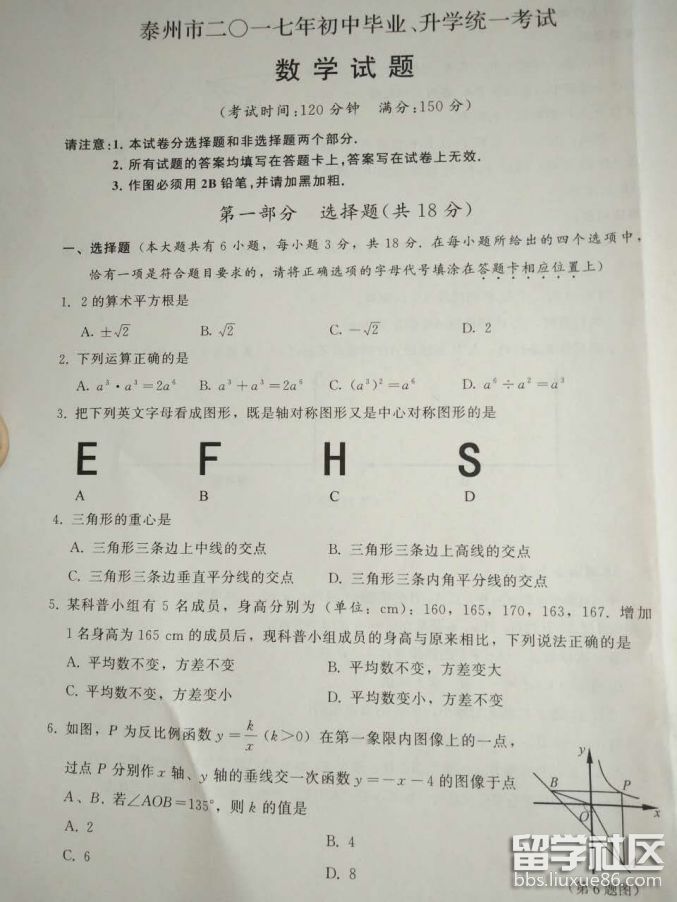 泰州市二〇一七年初中毕业、升学统一考试
数学试题
(考试时间:120分钟 满分:150分)
请注意:1. 本试卷分选择题和非选择题两个部分.
2. 所有试题的答案均填写在答题卡上,答案写在试卷上无效.
3. 作图必须用2B铅笔,并请加黑加粗.
第一部分 选择题(共18分)
一、选择题(本大题共有6小题,每小题3分,共18分. 在每小题所给出的四个选项中,
恰有一项是符合题目要求的,请将正确选项的字母代号填涂在答题卡相应位置上)
1. 2的算术平方根是
A. ±√2 B. √2 C. −√2 D. 2
2. 下列运算正确的是
A. a³·a³=2a⁶ B. a³+a³=2a⁶ C. (a³)²=a⁶ D. a⁶÷a²=a³
3. 把下列英文字母看成图形,既是轴对称图形又是中心对称图形的是
E F H S
A B C D
4. 三角形的重心是
A. 三角形三条边上中线的交点 B. 三角形三条边上高线的交点
C. 三角形三条边垂直平分线的交点 D. 三角形三条内角平分线的交点
5. 某科普小组有5名成员,身高分别为(单位:cm):160,165,170,163,167. 增加
1名身高为165 cm的成员后,现科普小组成员的身高与原来相比,下列说法正确的是
A. 平均数不变,方差不变 B. 平均数不变,方差变大
C. 平均数不变,方差变小 D. 平均数变小,方差不变
6. 如图,P为反比例函数y=k/x(k>0)在第一象限内图像上的一点,
过点P分别作x轴、y轴的垂线交一次函数y=−x−4的图像于点
A、B. 若∠AOB=135°,则k的值是
A. 2
B. 4
C. 6
D. 8
y
B P
O x
(第6题图)
留学社区
bbs.liuxue86.com